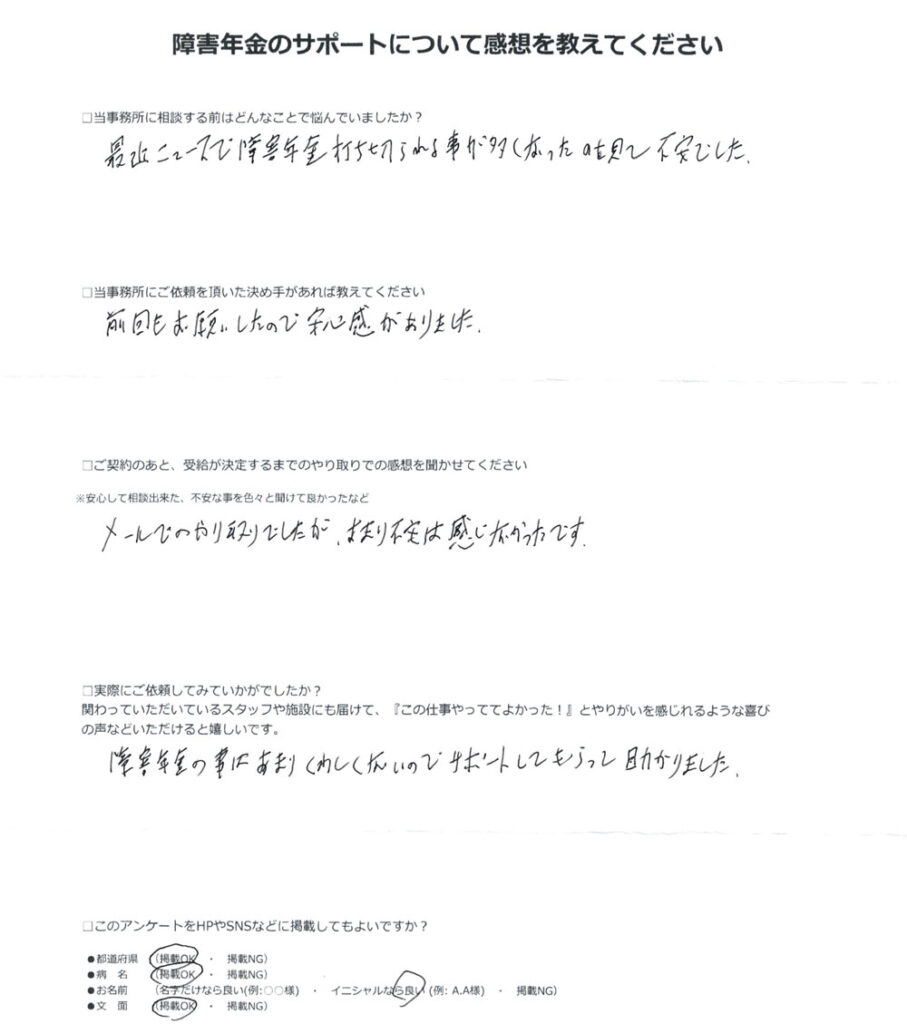 障害年金のサポートについて感想を教えてください
□当事務所に相談する前はどんなことで悩んでいましたか？
最近ニュースで障害年金打ち切られる事が多くなったのを見て不安でした.
□当事務所にご依頼を頂いた決め手があれば教えてください
前回もお願いしたので安心感がありました.
□ご契約のあと、受給が決定するまでのやり取りでの感想を聞かせてください
※安心して相談出来た、不安な事を色々と聞けて良かったなど
メールでのやり取りでしたが、あまり不安は感じなかったです.
□実際にご依頼してみていかがでしたか？
関わっていただいているスタッフや施設にも届けて、『この仕事やっててよかった！』とやりがいを感じれるような喜び
の声などいただけると嬉しいです。
障害年金の事はあまりくわしくないのでサポートしてもらって助かりました.
□このアンケートをHPやSNSなどに掲載してもよいですか？
●都道府県 (掲載OK ・ 掲載NG)
●病 名 (掲載OK ・ 掲載NG)
●お名前 (名字だけなら良い(例:○○様) ・ イニシャルなら良い (例: A.A様) ・ 掲載NG)
●文 面 (掲載OK ・ 掲載NG)